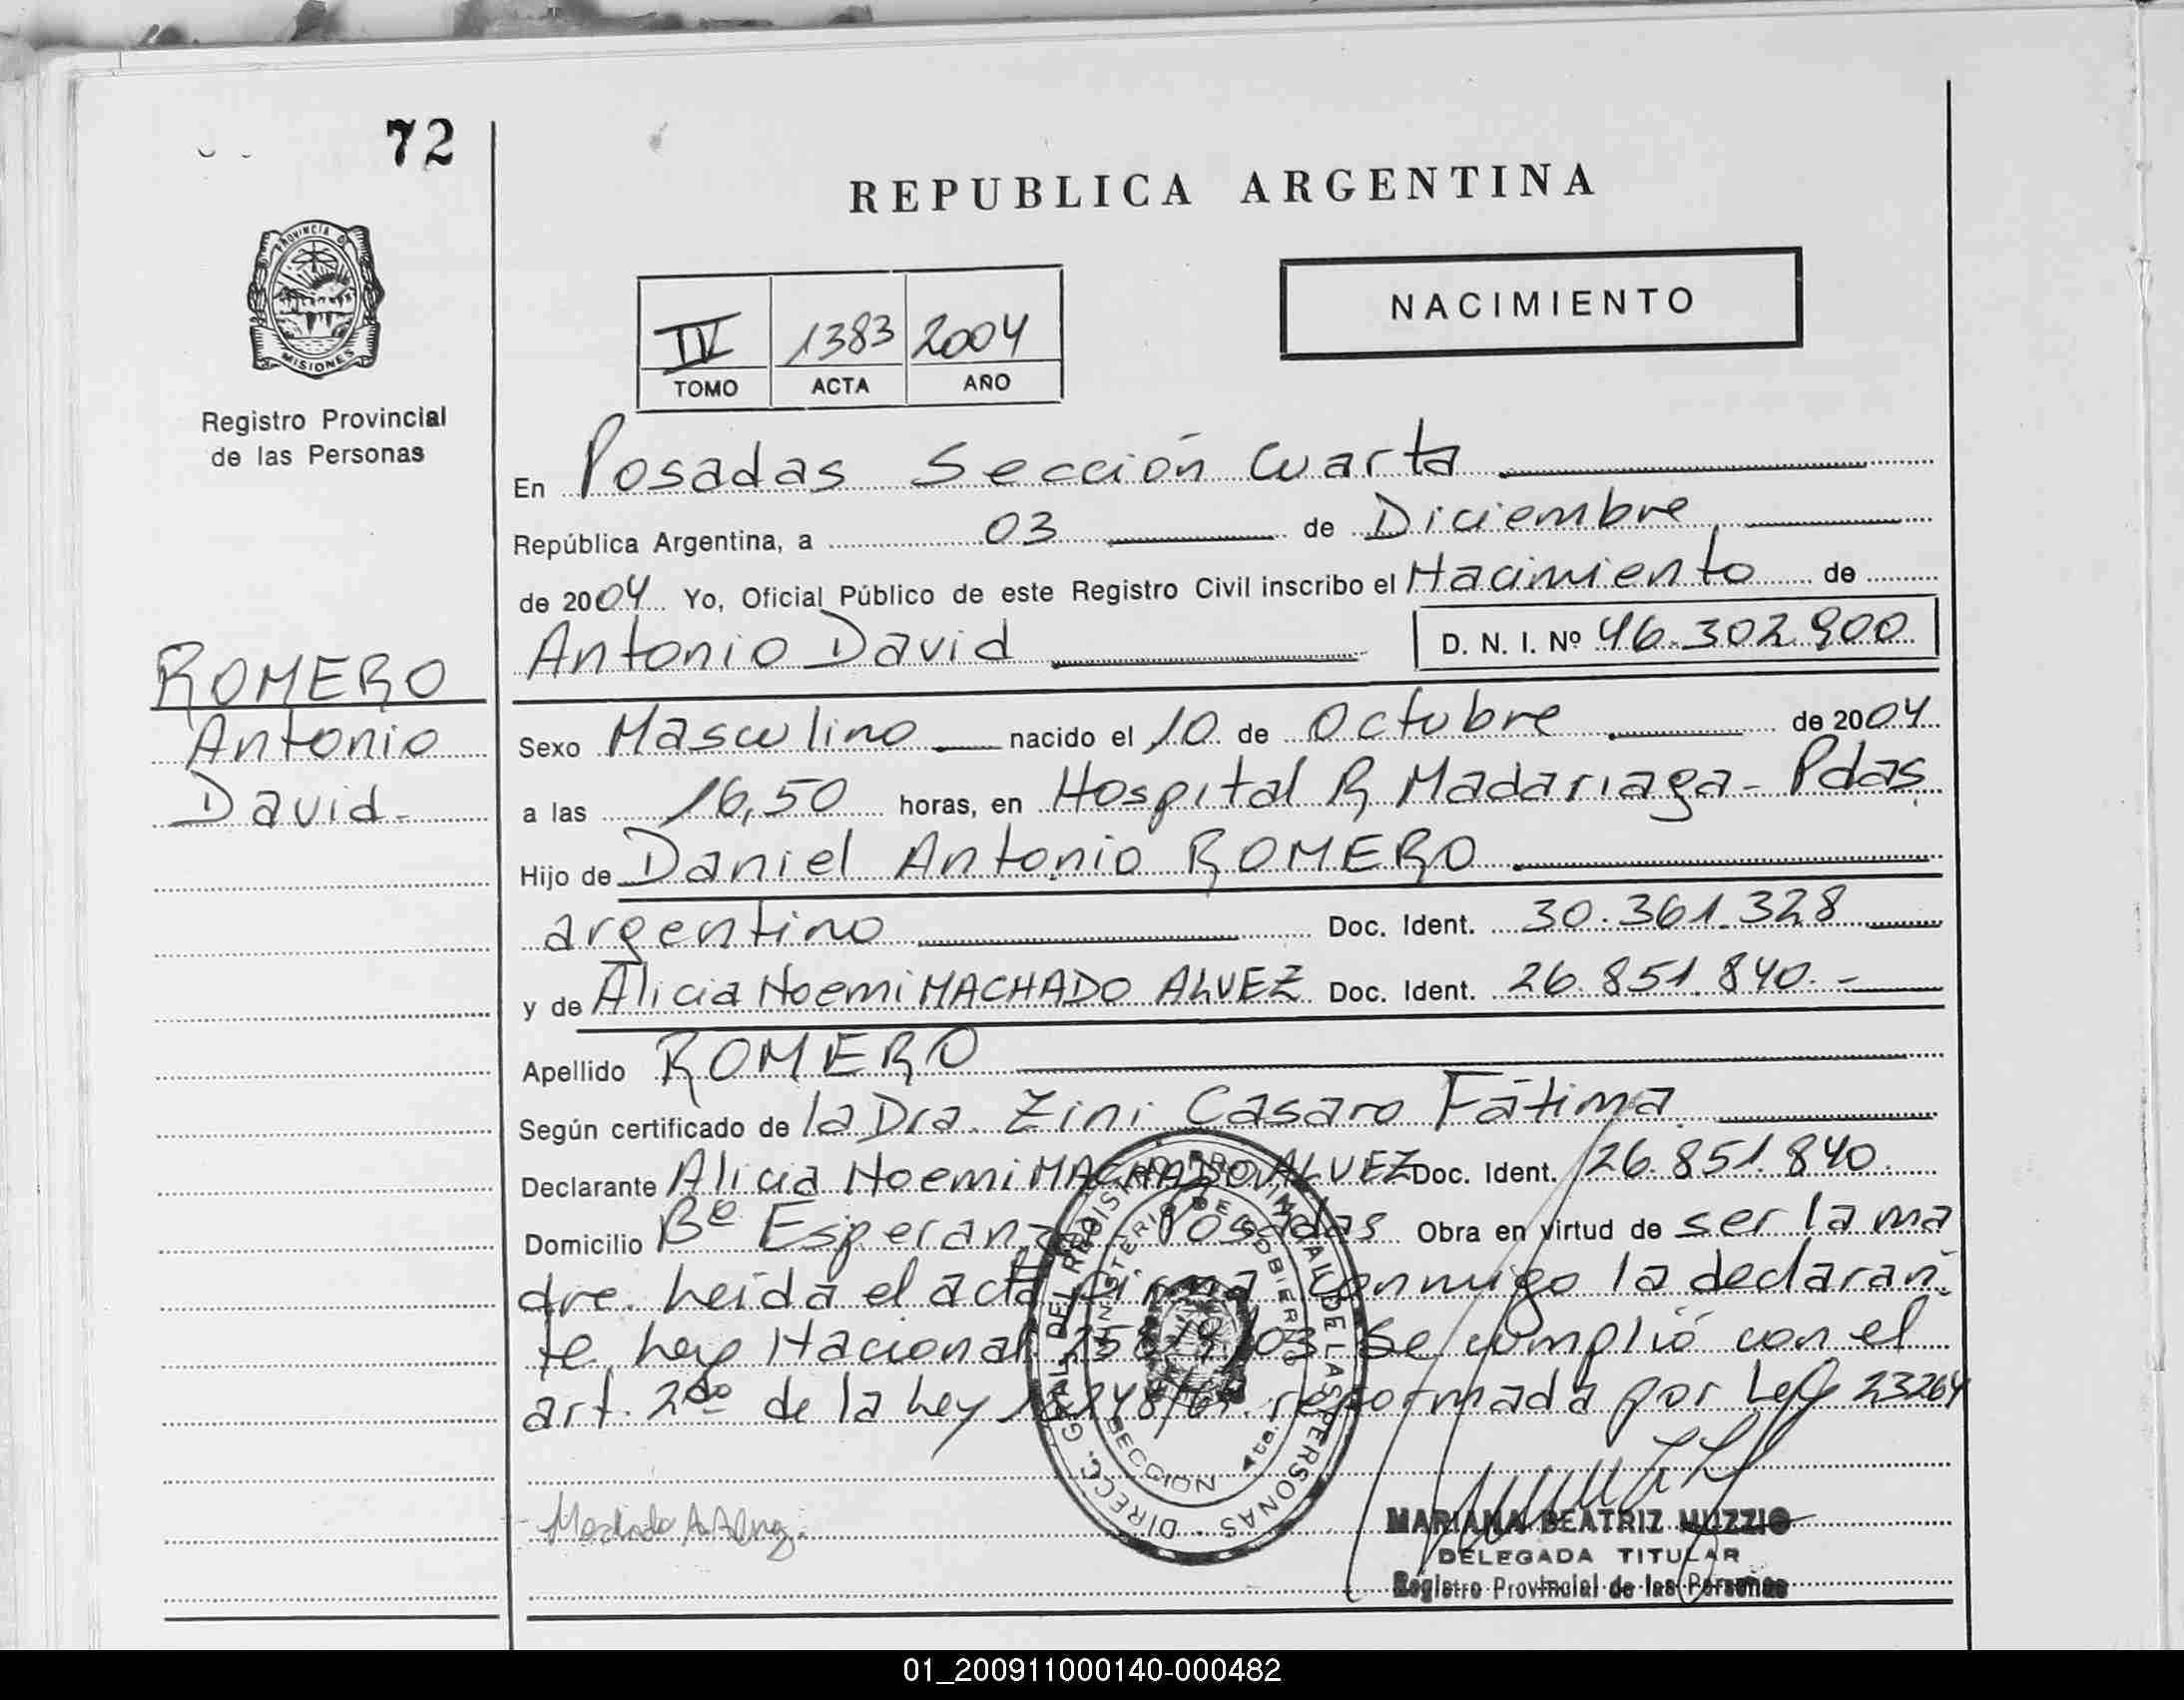 72
REPUBLICA ARGENTINA
PROVINCIA DE
MISIONES
Registro Provincial
de las Personas
NACIMIENTO
IV 1383 2004
TOMO ACTA AÑO
En Posadas Sección Cuarta
República Argentina, a 03 de Diciembre
de 2004 Yo, Oficial Público de este Registro Civil inscribo el Nacimiento de
Antonio David D. N. I. Nº 46.302.900
ROMERO
Antonio
David.-
Sexo Masculino nacido el 10 de Octubre de 2004
a las 16,50 horas, en Hospital R. Madariaga - Pdas
Hijo de Daniel Antonio ROMERO
argentino Doc. Ident. 30.361.328
y de Alicia Noemi MACHADO ALVEZ Doc. Ident. 26.851.840.-
Apellido ROMERO
Según certificado de la Dra. Zini Casaro Fátima
Declarante Alicia Noemi MACHADO ALVEZ Doc. Ident. 26.851.840.
Domicilio Bº Esperanza - Posadas Obra en virtud de ser la ma
dre. Leida el acta firma conmigo la declaran-
te, Ley Nacional 25819/03 Se cumplió con el
art. 2do de la Ley 18248/69. reformada por Ley 23264
DIRECC. GRAL. DEL REGISTRO PROVINCIAL DE LAS PERSONAS
MINISTERIO DE GOBIERNO
SECCION 4ta.
Machado A. Alvez.
MARIANA BEATRIZ MUZZIO
DELEGADA TITULAR
Registro Provincial de las Personas
01_200911000140-000482